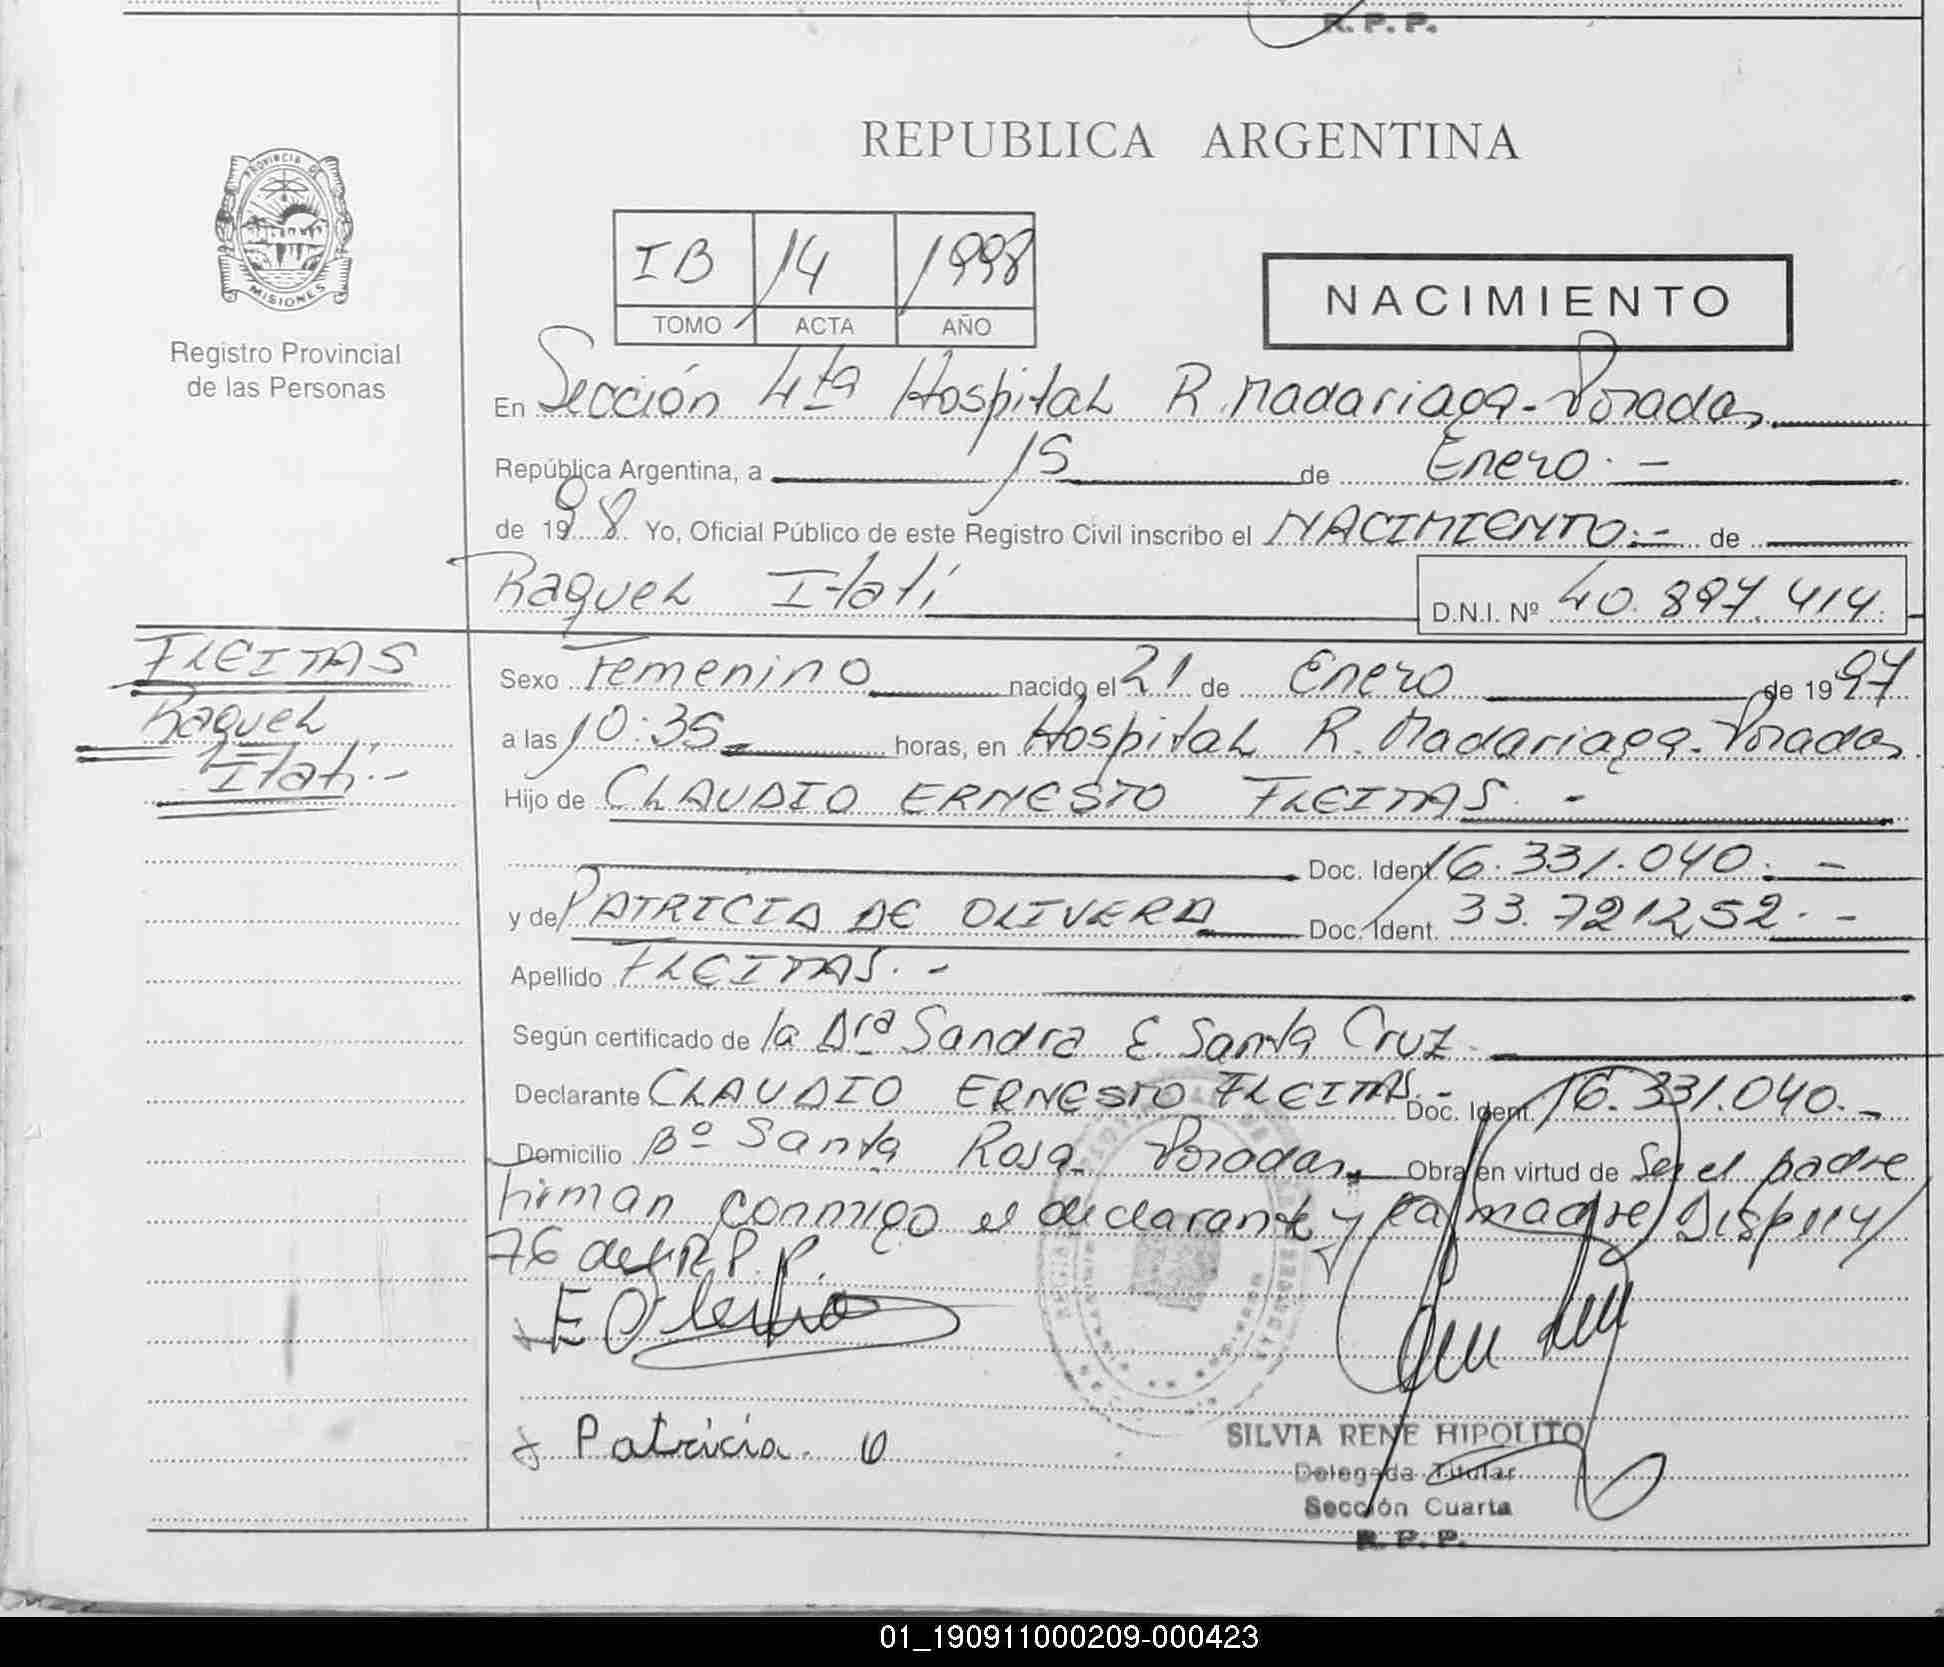 R. P. P.
REPUBLICA ARGENTINA
PROVINCIA DE
MISIONES
Registro Provincial
de las Personas
IB 14 1998
TOMO ACTA AÑO
NACIMIENTO
En Sección 4ta Hospital R. Madariaga - Posadas
República Argentina, a 15 de Enero.-
de 1998 Yo, Oficial Público de este Registro Civil inscribo el NACIMIENTO.- de
Raquel Itatí D.N.I. Nº 40.897.414.
FLEITAS
Raquel
Itatí.-
Sexo Femenino nacido el 21 de Enero de 1997
a las 10:35 horas, en Hospital R. Madariaga - Posadas.
Hijo de CLAUDIO ERNESTO FLEITAS.-
Doc. Ident. 16.331.040.-
y de PATRICIA DE OLIVERA Doc. Ident. 33.721252.-
Apellido FLEITAS.-
Según certificado de la Dra Sandra E. Santa Cruz.
Declarante CLAUDIO ERNESTO FLEITAS.- Doc. Ident. 16.331.040.-
Domicilio Bº Santa Rosa Posadas Obra en virtud de Ser el padre
firman conmigo el declarante y la madre Disp 11y/
76 del R.P.P.
Patricia. O
SILVIA RENE HIPOLITO
Delegada Titular
Sección Cuarta
R. P. P.
01_190911000209-000423